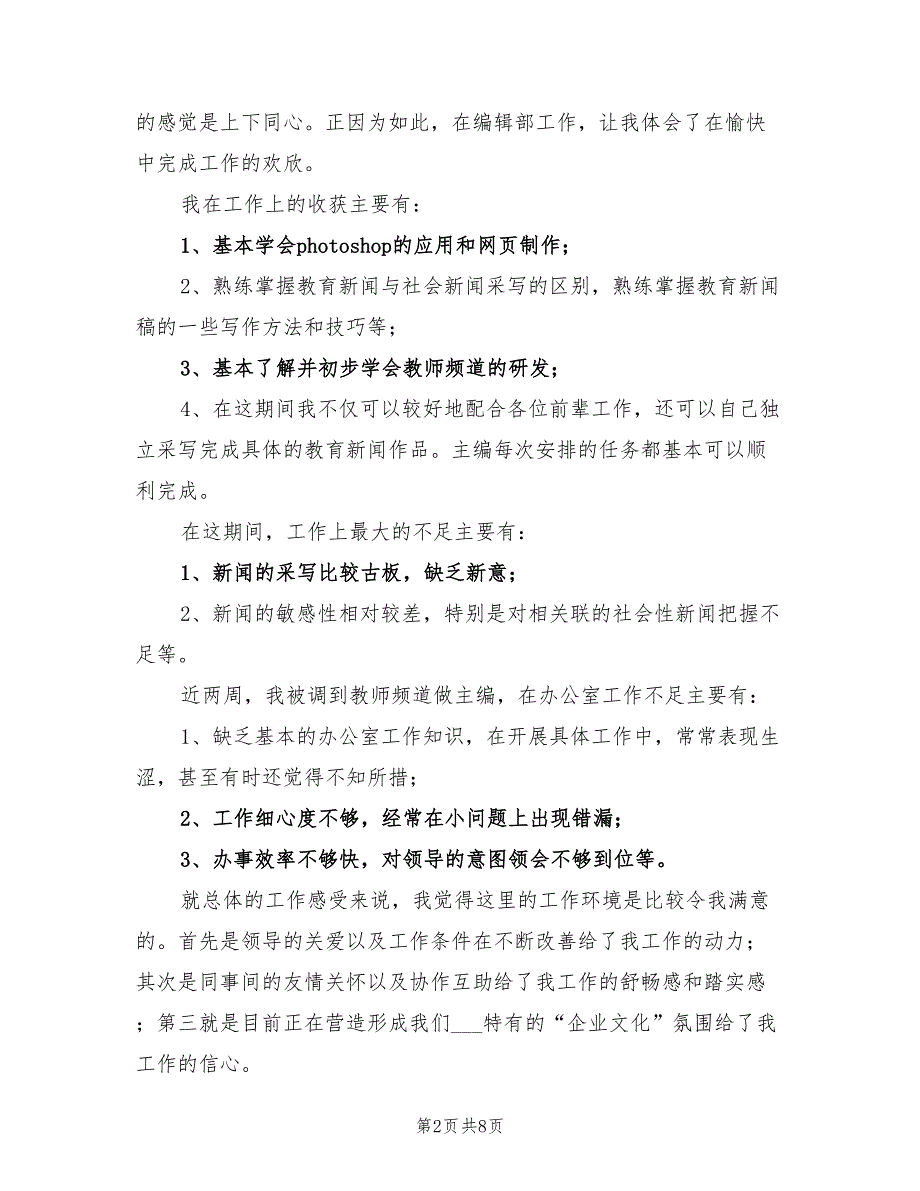 的感觉是上下同心。正因为如此，在编辑部工作，让我体会了在愉快
中完成工作的欢欣。
我在工作上的收获主要有：
1、基本学会photoshop的应用和网页制作；
2、熟练掌握教育新闻与社会新闻采写的区别，熟练掌握教育新闻
稿的一些写作方法和技巧等；
3、基本了解并初步学会教师频道的研发；
4、在这期间我不仅可以较好地配合各位前辈工作，还可以自己独
立采写完成具体的教育新闻作品。主编每次安排的任务都基本可以顺
利完成。
在这期间，工作上最大的不足主要有：
1、新闻的采写比较古板，缺乏新意；
2、新闻的敏感性相对较差，特别是对相关联的社会性新闻把握不
足等。
近两周，我被调到教师频道做主编，在办公室工作不足主要有：
1、缺乏基本的办公室工作知识，在开展具体工作中，常常表现生
涩，甚至有时还觉得不知所措；
2、工作细心度不够，经常在小问题上出现错漏；
3、办事效率不够快，对领导的意图领会不够到位等。
就总体的工作感受来说，我觉得这里的工作环境是比较令我满意
的。首先是领导的关爱以及工作条件在不断改善给了我工作的动力；
其次是同事间的友情关怀以及协作互助给了我工作的舒畅感和踏实感
；第三就是目前正在营造形成我们___特有的“企业文化”氛围给了我
工作的信心。
第2页 共8页